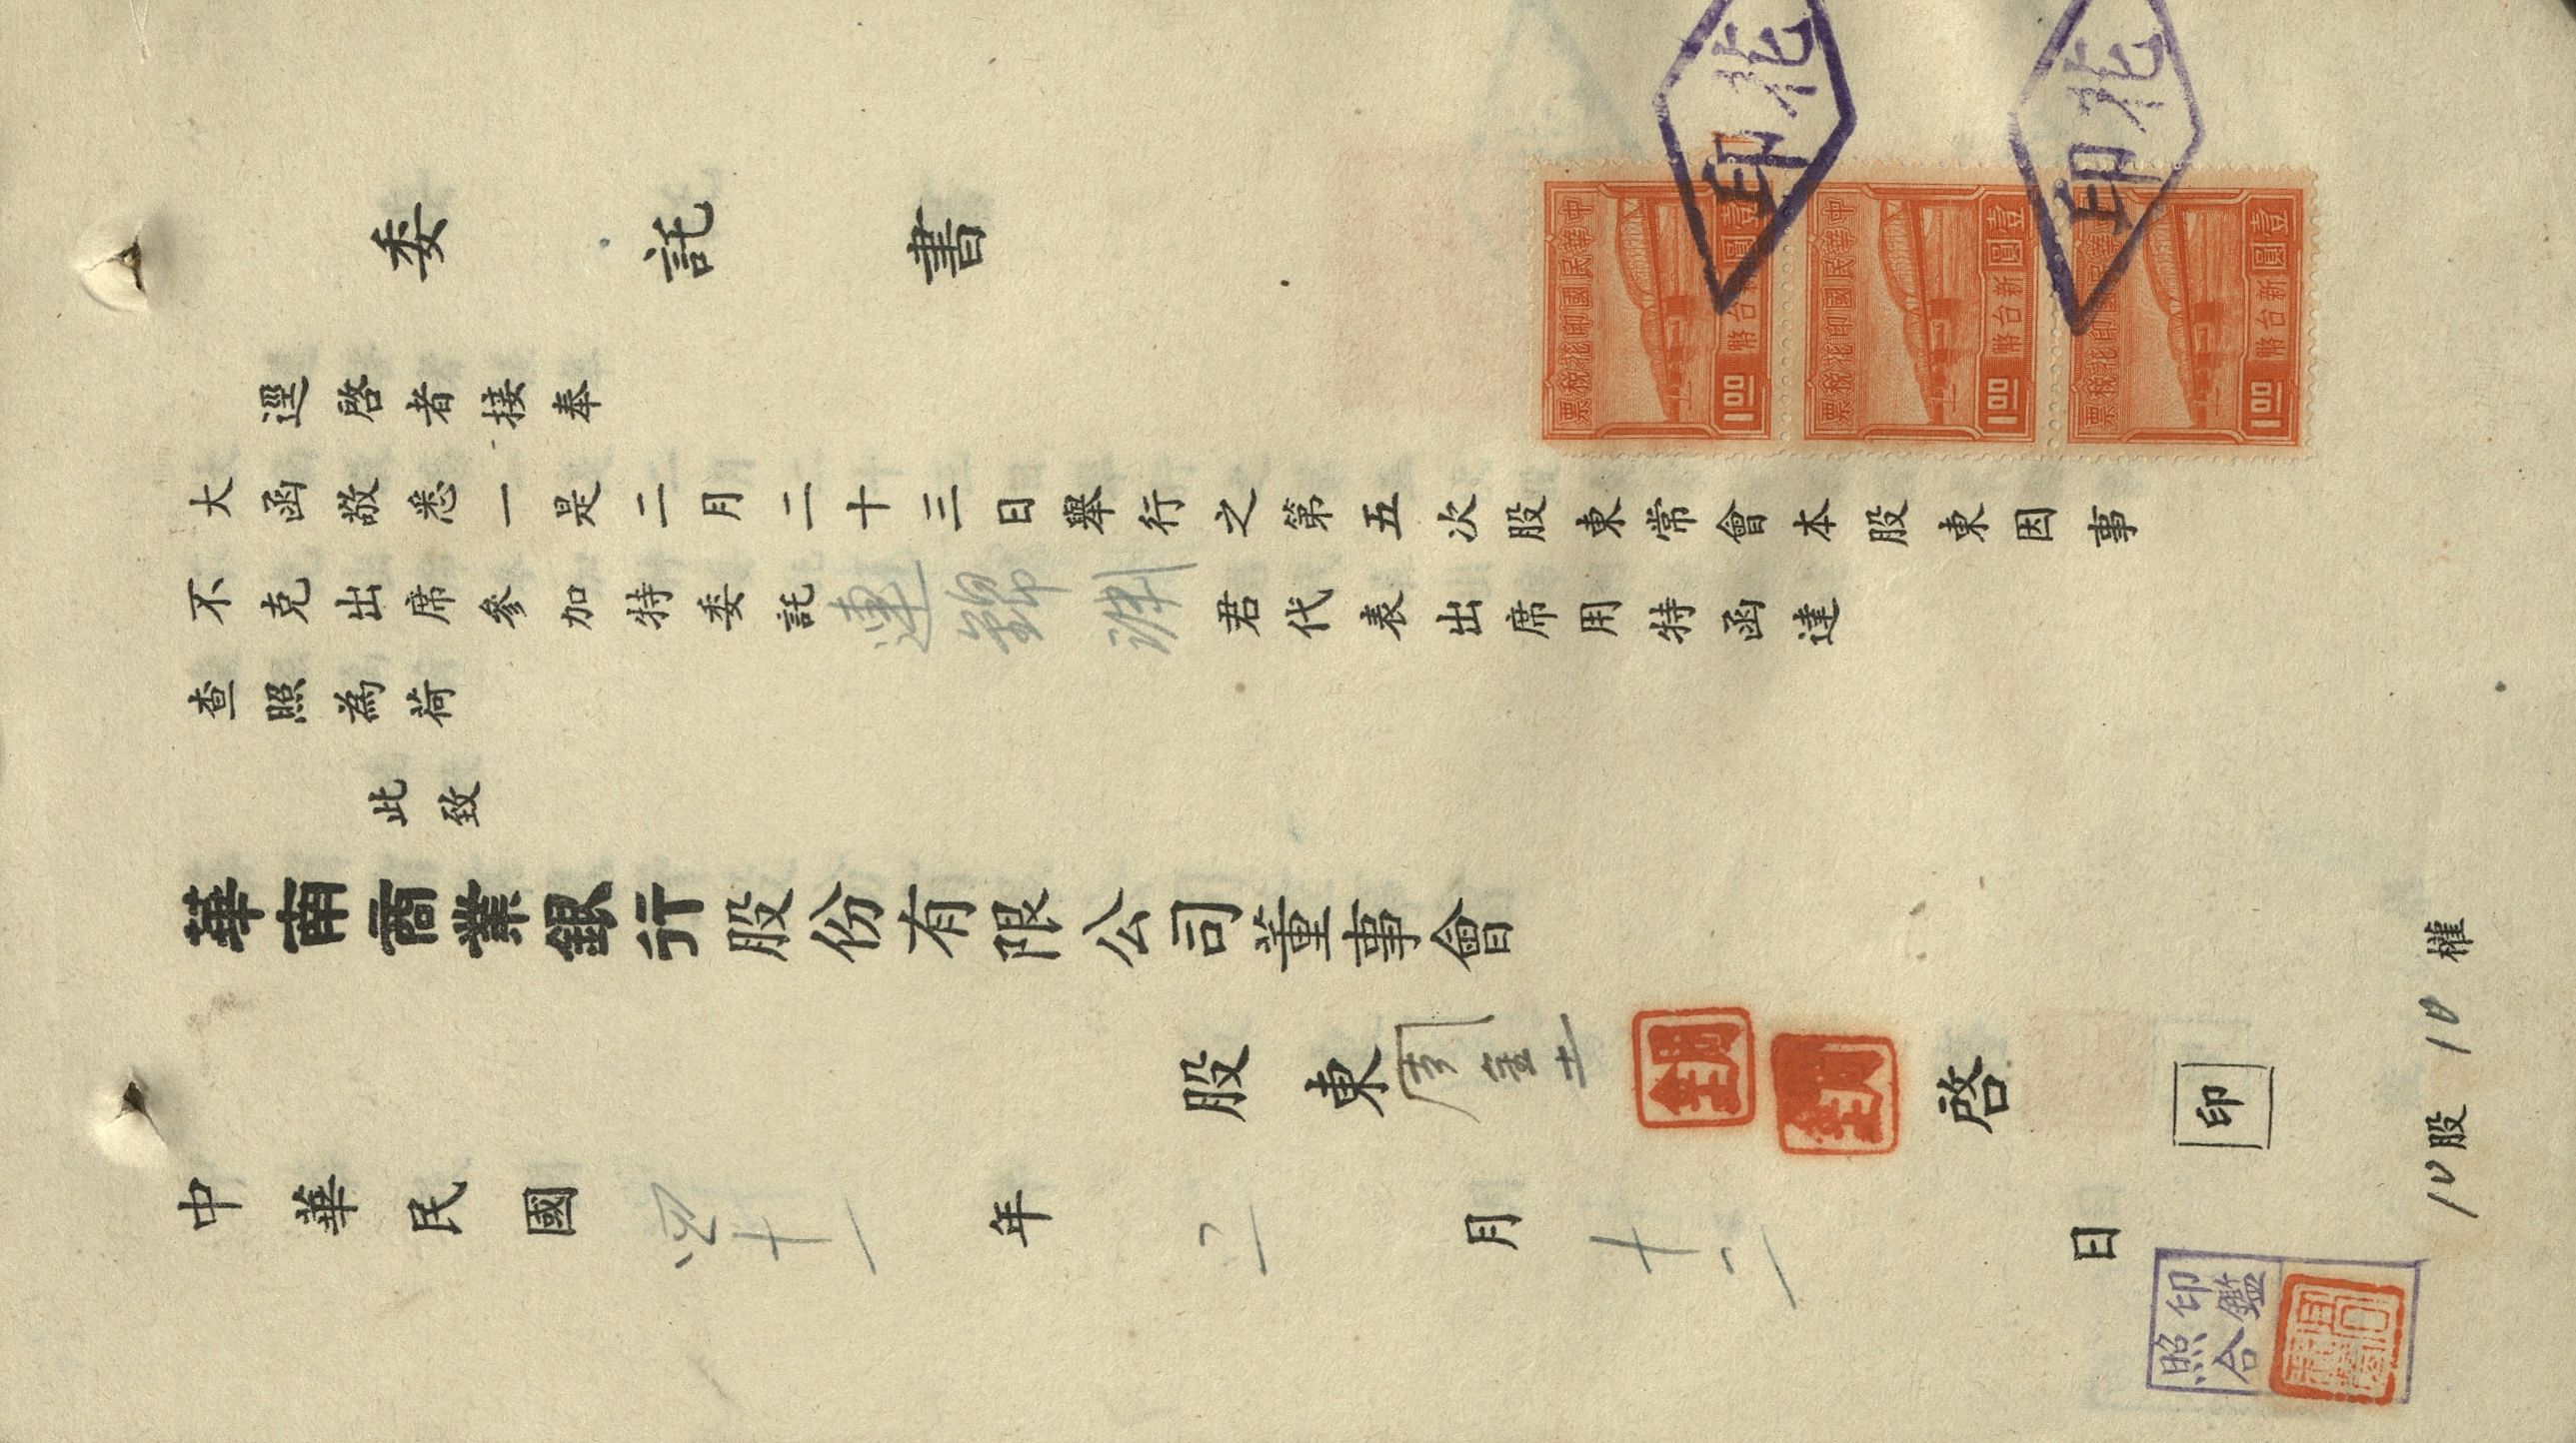 委託書
逕啓者接奉
大函敬悉一是二月二十三日舉行之第五次股東常會本股東因事
不克出席參加特委託連錦淵君代表出席用特函達
查照為荷
此致
華南商業銀行股份有限公司董事會
股東周金土啓
印
中華民國四十一年二月十二日
10股10權
印鑑
照合
中華民國印花稅票
壹圓
新台幣
1.00
中華民國印花稅票
壹圓
新台幣
1.00
中華民國印花稅票
壹圓
新台幣
1.00
印花
印花